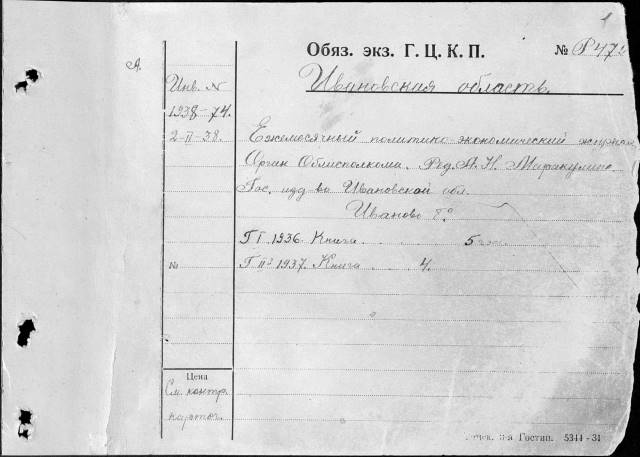 1
А.
Обяз. экз. Г. Ц. К. П. № Р 472
Инв. N
Ивановская область.
1938-74.
2-II-38. Ежемесячный политико-экономический журнал
Орган Облисполкома. Ред. А. Н. Маракулин.
Гос. изд во Ивановской обл.
Иваново
Г I 1936. Книга . . . 5 экз.
№ Г II 1937. Книга . . . 4.
Цена
См. контр.
картот.
Гостип. 5344-31